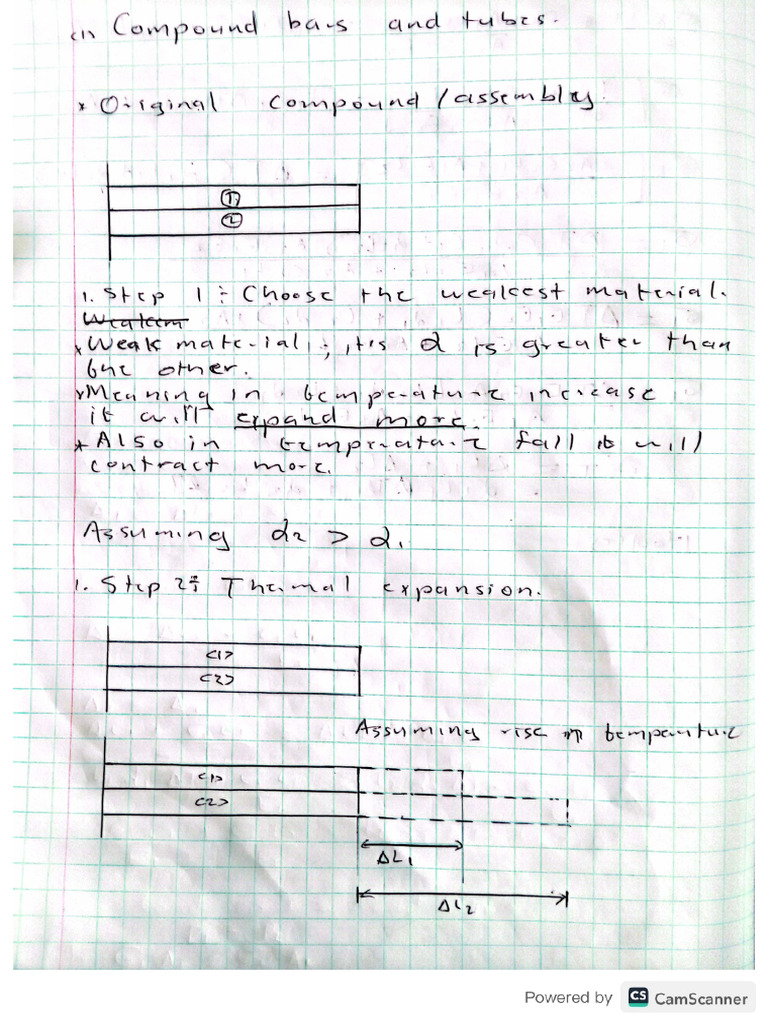 (1) Compound bars and tubes.
* Original compound/assembly.
①
②
1. Step 1 : Choose the weakest material.
* Weak material ; its α is greater than
the other.
* Meaning in temperature increase
it will expand more.
* Also in temperature fall it will
contract more.
Assuming α2 > α1
1. Step 2: Thermal expansion.
<1>
<2>
Assuming rise in temperature
<1>
<2>
ΔL1
ΔL2
Powered by CS CamScanner